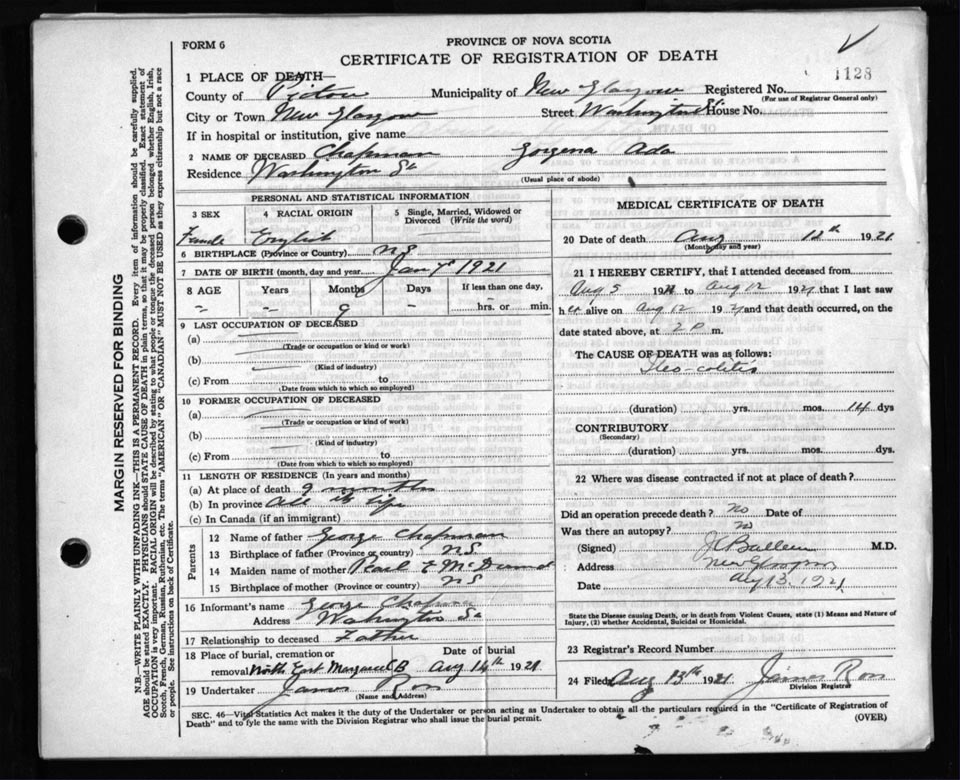 PROVINCE OF NOVA SCOTIA
FORM 6
CERTIFICATE OF REGISTRATION OF DEATH
1128
1 PLACE OF DEATH—
County of Pictou Municipality of New Glasgow Registered No.
(For use of Registrar General only)
City or Town New Glasgow Street Washington St House No.
If in hospital or institution, give name
2 NAME OF DECEASED Chapman Ada
Residence Washington St
(Usual place of abode)
PERSONAL AND STATISTICAL INFORMATION
3 SEX 4 RACIAL ORIGIN 5 Single, Married, Widowed or Divorced (Write the word)
Female English
6 BIRTHPLACE (Province or Country) N.S.
7 DATE OF BIRTH (month, day and year) Jan 7 1921
8 AGE Years Months Days If less than one day,
9 hrs. or min.
9 LAST OCCUPATION OF DECEASED
(a)
(Trade or occupation or kind or work)
(b)
(Kind of industry)
(c) From to
(Date from which to which so employed)
10 FORMER OCCUPATION OF DECEASED
(a)
(Trade or occupation or kind of work)
(b)
(Kind of industry)
(c) From to
(Date from which to which so employed)
11 LENGTH OF RESIDENCE (In years and months)
(a) At place of death 9 months
(b) In province all life
(c) In Canada (if an immigrant)
Parents
12 Name of father George Chapman
13 Birthplace of father (Province or country) N.S.
14 Maiden name of mother Pearl
15 Birthplace of mother (Province or country) N S
16 Informant's name George Chapman
Address Washington St
17 Relationship to deceased Father
18 Place of burial, cremation or removal Date of burial
North East Margaree C.B Aug 14th 1921
19 Undertaker James Ross
(Name and Address)
MEDICAL CERTIFICATE OF DEATH
20 Date of death Aug 12th 1921
(Month, day and year)
21 I HEREBY CERTIFY, that I attended deceased from
Aug 5 1921 to Aug 12 1921 that I last saw
her alive on Aug 12 1921 and that death occurred, on the
date stated above, at 2 P m.
The CAUSE OF DEATH was as follows:
Ileo-colitis
(duration) yrs. mos. 14 dys
CONTRIBUTORY
(Secondary)
(duration) yrs. mos. dys.
22 Where was disease contracted if not at place of death?
Did an operation precede death? no Date of
Was there an autopsy? no
(Signed) M.D.
Address New Glasgow
Date Aug 13. 1921
State the Disease causing Death, or in death from Violent Causes, state (1) Means and Nature of
Injury, (2) whether Accidental, Suicidal or Homicidal.
23 Registrar's Record Number
24 Filed Aug 13th 1921 James Ross
Division Registrar
SEC. 46—Vital Statistics Act makes it the duty of the Undertaker or person acting as Undertaker to obtain all the particulars required in the "Certificate of Registration of
Death" and to fyle the same with the Division Registrar who shall issue the burial permit.
(OVER)
MARGIN RESERVED FOR BINDING
N.B.—WRITE PLAINLY WITH UNFADING INK—THIS IS A PERMANENT RECORD. Every item of information should be carefully supplied.
AGE should be stated EXACTLY. PHYSICIANS should STATE CAUSE OF DEATH in plain terms, so that it may be properly classified. Exact statement of
OCCUPATION is very important. RACIAL ORIGIN will be described by stating to what people or tongue the deceased person belonged whether English, Irish,
Scotch, French, German, Russian, Ruthenian, etc. The terms "AMERICAN" OR "CANADIAN" MUST NOT BE USED as they express citizenship but not a race
or people. See instructions on back of Certificate.